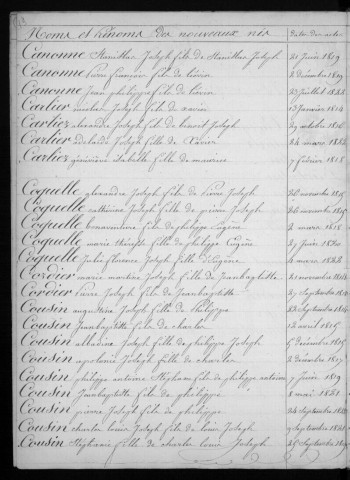 Noms et Prénoms des nouveaux nés Dates des actes
Canonne Stanislas Joseph fils de Stanislas Joseph 21 Juin 1819
Canonne Pierre françois fils de 2 décembre 1819
Canonne Jean philippe fils de 23 Juillet 1822
Cartier fils de xavier 13 Janvier 1814
Cartier alexandre Joseph fils de benoit Joseph 29 octobre 1816
Cartier adélaïde Joseph fille de Xavier 24 mars 1822
Cartier geneviève Isabelle fille de 7 février 1818
Coquelle alexandre Joseph fils de Pierre Joseph 26 novembre 1815
Coquelle catherine Joseph fille de pierre Joseph 26 novembre 1815
Coquelle bonaventure fils de philippe Eugène 2 mars 1818
Coquelle marie thérèse fille de philippe Eugène 27 Juin 1820
Coquelle Julie florence Joseph fille d'Eugène 4 mars 1822
Cordier marie martine Joseph fille de Jeanbaptiste 21 novembre
Cordier Pierre Joseph fils de Jeanbaptiste 29 Septembre
Cousin augustine Joseph fille de Philippe 23 Septembre
Cousin Jeanbaptiste fils de charles 12 avril 1815
Cousin Joseph fils de philippe Joseph 6 décembre 1815
Cousin apolonie Joseph fille de charles 2 décembre 1817
Cousin philippe antoine Stéphane fils de philippe antoine 7 Juin 1819
Cousin Jeanbaptiste fils de philippe 8 mai 1821
Cousin pierre Joseph fils de philippe 24 Septembre
Cousin charles louis Joseph fils de louis Joseph 9 Septembre
Cousin Stéphanie fille de charles louis Joseph 25 Septembre